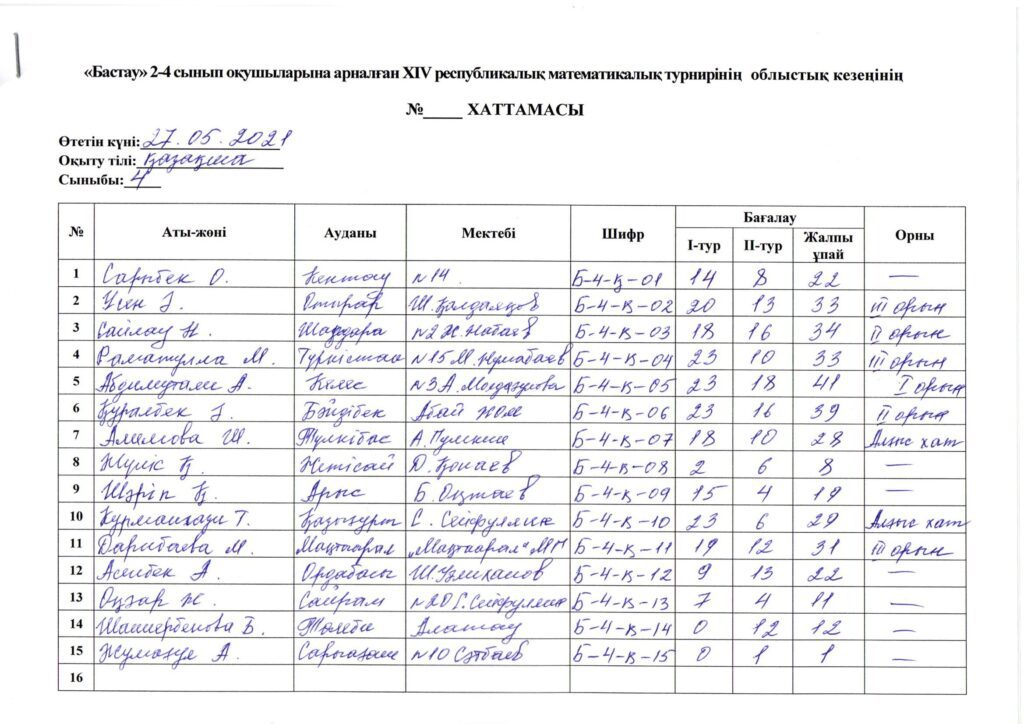 «Бастау» 2-4 сынып оқушыларына арналған XIV республикалық математикалық турнирінің облыстық кезеңінің
№____ ХАТТАМАСЫ
Өтетін күні: 27.05.2021
Оқыту тілі: қазақша
Сыныбы: 4
№ Аты-жөні Ауданы Мектебі Шифр Бағалау Орны
І-тур ІІ-тур Жалпы ұпай
1 Сарыбек О. Кентау №14. Б-4-Қ-01 14 8 22 —
2 Үсен Отырар Ш. Қалдаяқов Б-4-Қ-02 20 13 33 ІІІ орын
3 Сайлау Н. Шардара №2 Б-4-Қ-03 18 16 34 ІІ орын
4 Раматулла М. Түркістан №15 М. Жұмабаев Б-4-Қ-04 23 10 33 ІІІ орын
5 А. Келес №3 А. Молдағұлова Б-4-Қ-05 23 18 41 І орын
6 Құралбек Бәйдібек Абай Б-4-Қ-06 23 16 39 ІІ орын
7 Алимова Ш. Түлкібас А. Пушкин Б-4-Қ-07 18 10 28 Алғыс хат
8 Қ. Жетісай Д. Қонаев Б-4-Қ-08 2 6 8 —
9 Шәріп Қ. Арыс Б. Оңтаев Б-4-Қ-09 15 4 19 —
10 Құрманғази Т. Қазығұрт С. Сейфуллин Б-4-Қ-10 23 6 29 Алғыс хат
11 Дарибаева М. Мақтаарал „Мақтаарал" МГ Б-4-Қ-11 19 12 31 ІІІ орын
12 Асилбек А. Ордабасы Ш. Уәлиханов Б-4-Қ-12 9 13 22 —
13 Оңғар Ж. Сайрам №20 С. Сейфуллин Б-4-Қ-13 7 4 11 —
14 Б. Төлеби Алатау Б-4-Қ-14 0 12 12 —
15 А. Сарыағаш №10 Сәтбаев Б-4-Қ-15 0 1 1 —
16